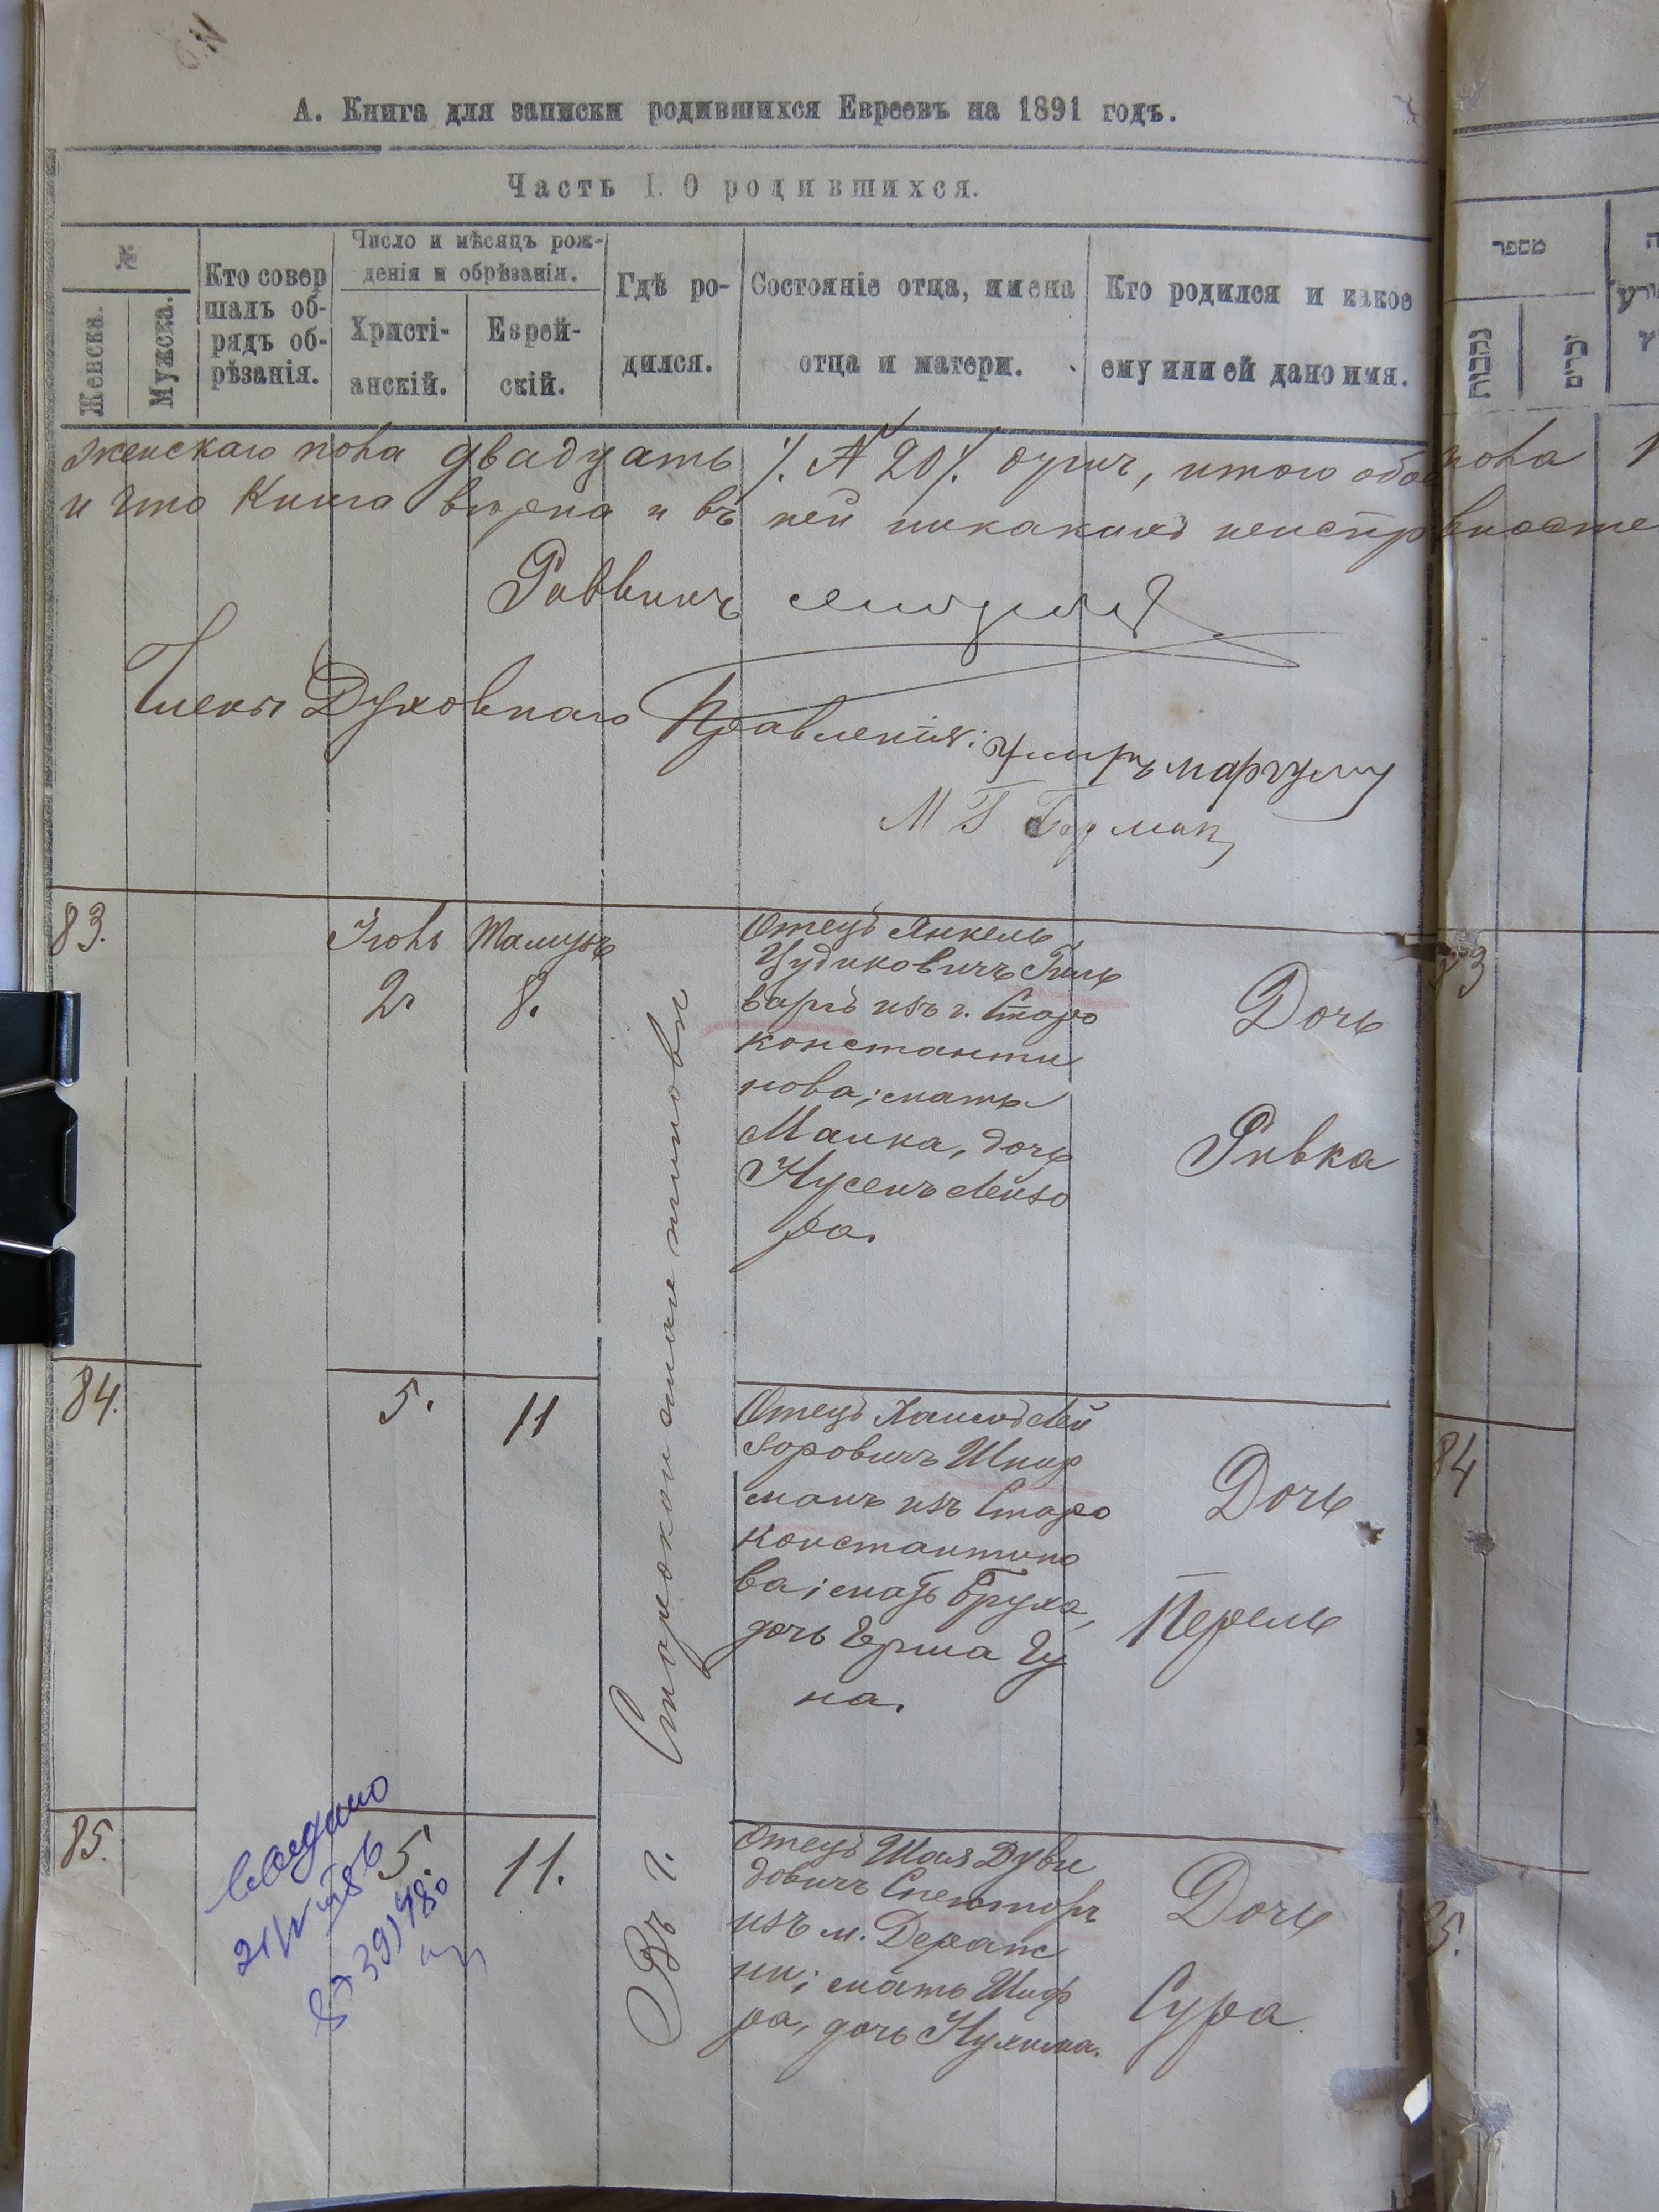 А. Книга для записки родившихся Евреевъ на 1891 годъ.
Часть I. О родившихся.
№
Женска.
Мужска.
Кто совер
шалъ об-
рядъ об-
рѣзанія.
Число и мѣсяцъ рож-
денія и обрѣзанія.
Христі-
анскій.
Еврей-
скій.
Гдѣ ро-
дился.
Состояніе отца, имена
отца и матери.
Кто родился и какое
ему или ей дано имя.
מספר
נקבות
זכרים
женскаго пола двадцать /. № 20 /. душъ, итого обоего пола
и что Книга вѣрна и въ ней никакихъ неисправносте
Раввинъ
Члены Духовнаго Правленія:
М Г
83.
Іюль
2.
Тамузъ
8.
Въ г. Староконстантиновѣ
Отецъ Янкель
Цудиковичъ Гиль
варгъ изъ г. Старо
константи
нова; мать
Малка, дочь
Нусенъ Лейзо
ра.
Дочь
Ривка
84.
5.
11
Отецъ Хаимъ Лей
зоровичъ Шпир
манъ изъ Старо
константино
ва; мать Бруха,
дочь Герша Гу
на.
Дочь
Перель
84
85.
5.
11.
Отецъ Шая Дуви
довичъ Спекторъ
изъ м. Дераж
ни; мать Шиф
ра, дочь Нухима.
Дочь
Сура.